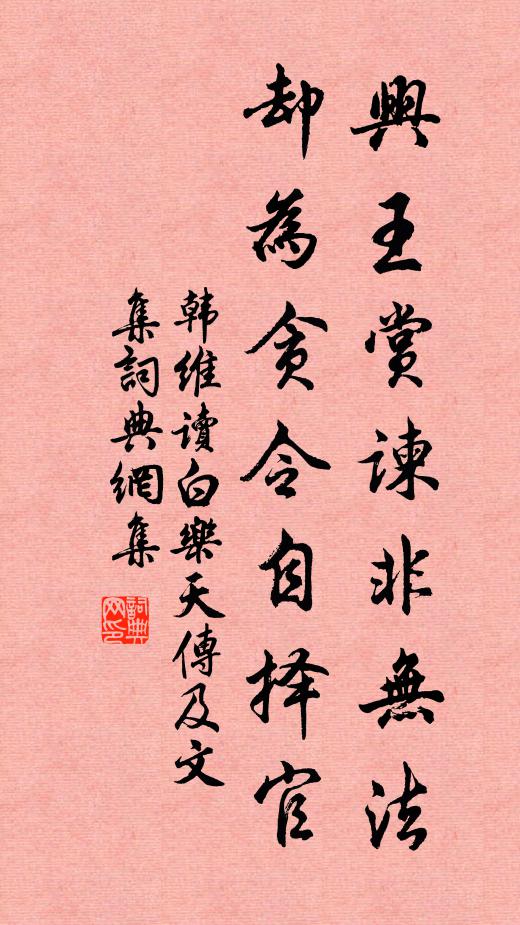 興王賞諫非無法
却為貪令自择官
韩維讀白樂天傳及文
集詞典網集
詞典网印